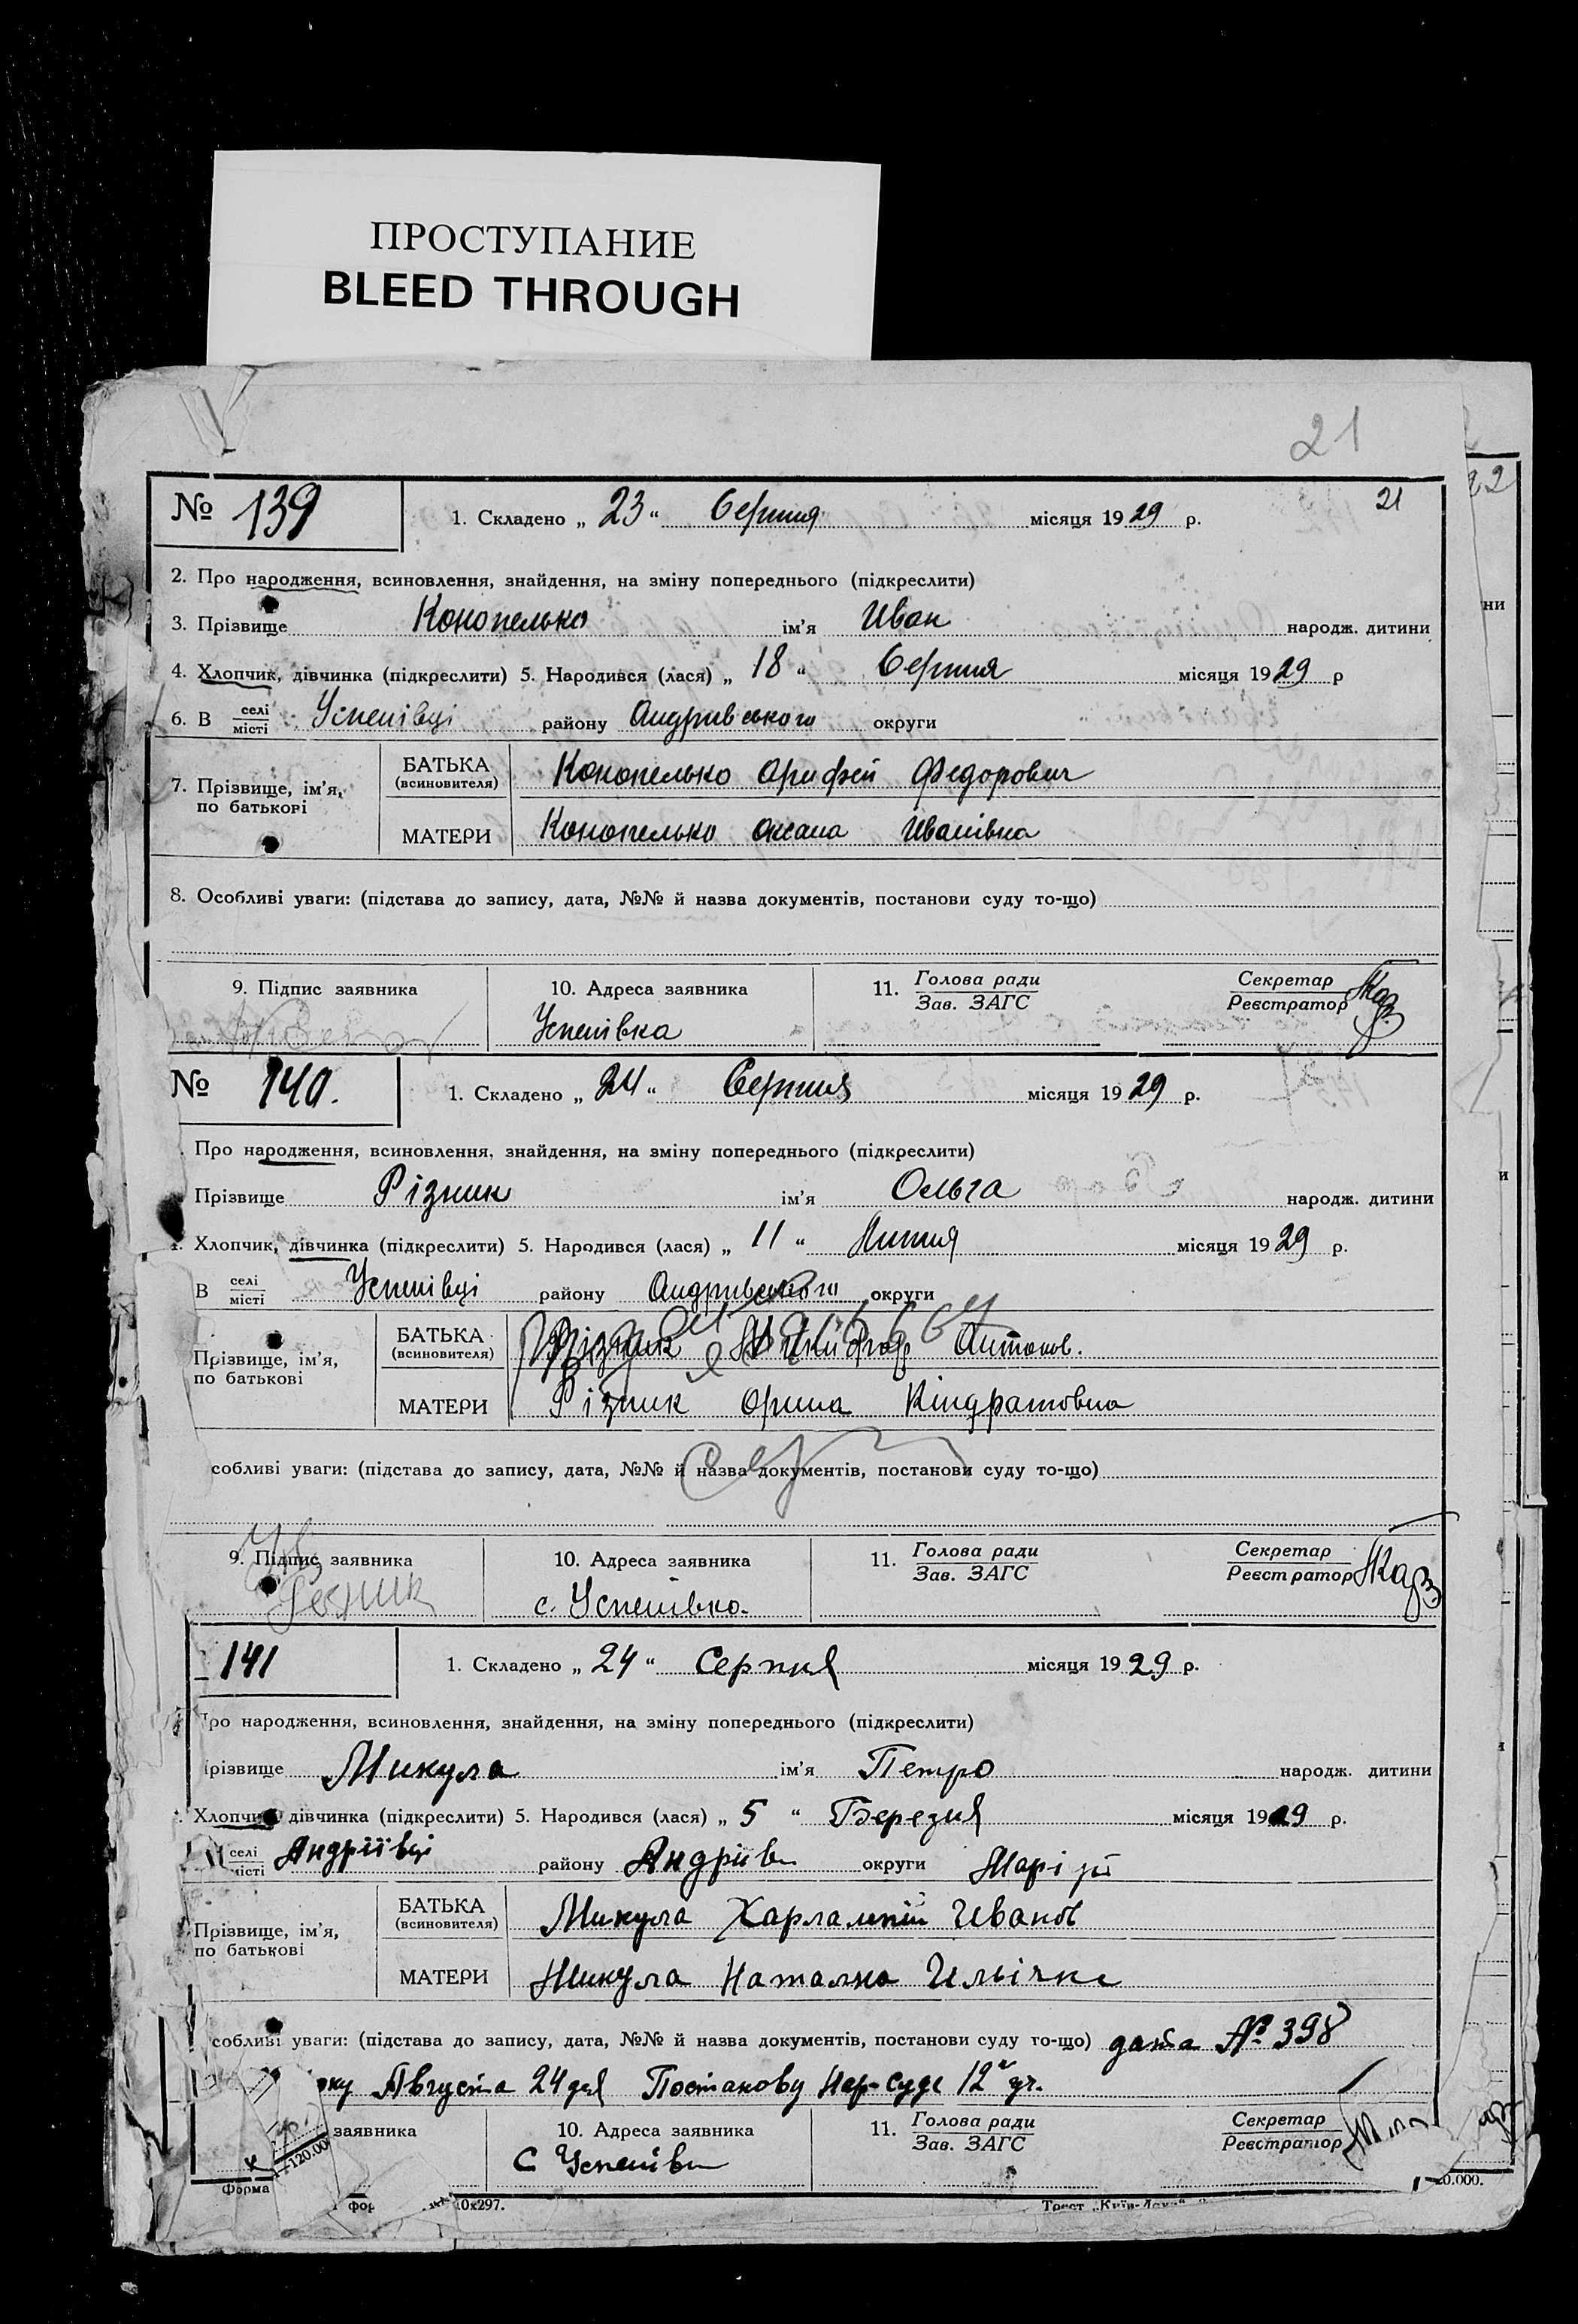 ПРОСТУПАНИЕ
BLEED THROUGH
21
№ 139 1. Складено „ 23 “ Серпня місяця 1929 р. 21
2. Про народження, всиновлення, знайдення, на зміну попереднього (підкреслити)
3. Прізвище Конопелько ім’я Иван народж. дитини
4. Хлопчик, дівчинка (підкреслити) 5. Народився (лася) „ 18 “ Серпня місяця 1929 р
6. В селі місті Успенівці району Андривського округи
7. Прізвище, ім’я, по батькорі
БАТЬКА (всиновителя) Конопелько Федорович
МАТЕРИ Конопелько Оксана Иванівна
8. Особливі уваги: (підстава до запису, дата, №№ й назва документів, постанови суду то-що)
9. Підпис заявника 10. Адреса заявника 11. Голова ради Зав. ЗАГС Секретар Реєстратор
Успенівка
№ 140. 1. Складено „ 24 “ Серпня місяця 1929 р.
Про народження, всиновлення, знайдення, на зміну попереднього (підкреслити)
Прізвище Різник ім’я Ольга народж. дитини
Хлопчик, дівчинка (підкреслити) 5. Народився (лася) „ 11 “ Липня місяця 1929 р.
В селі місті Успенівці району Андривського округи
Прізвище, ім’я, по батькові
БАТЬКА (всиновителя) Різник Антонов.
МАТЕРИ Різник Орина Кіндратовна
собливі уваги: (підстава до запису, дата, №№ й назва документів, постанови суду то-що)
9. Підпис заявника 10. Адреса заявника 11. Голова ради Зав. ЗАГС Секретар Реєстратор
с. Успенівка.
141 1. Складено „ 24 “ Серпня місяця 1929 р.
Про народження, всиновлення, знайдення, на зміну попереднього (підкреслити)
різвище Микула ім’я Петро народж. дитини
Хлопчик, дівчинка (підкреслити) 5. Народився (лася) „ 5 “ Березня місяця 1929 р.
селі місті Андріївці району Андріїв округи
Прізвище, ім’я, по батькові
БАТЬКА (всиновителя) Микула Харлампій Иванов
МАТЕРИ Микула Наталка
собливі уваги: (підстава до запису, дата, №№ й назва документів, постанови суду то-що) дата № 398
Августа 24 дня Постанову Нар-Суда 12 уч.
заявника 10. Адреса заявника 11. Голова ради Зав. ЗАГС Секретар Реєстратор
С
Форма